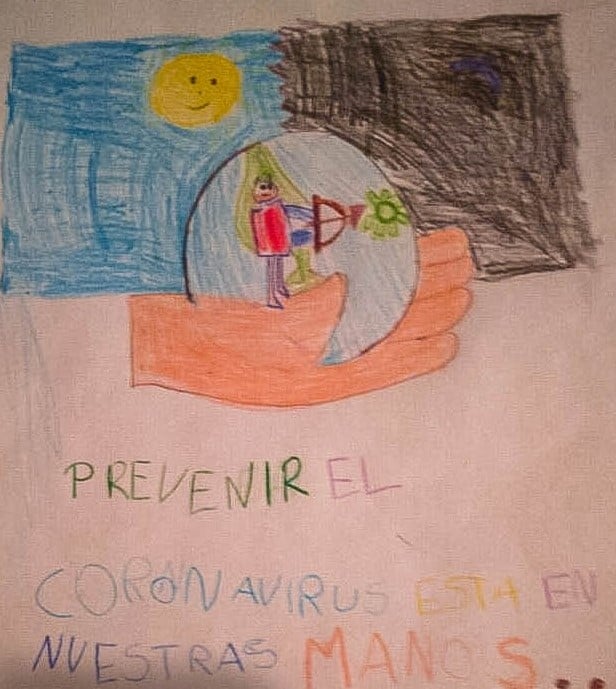 PREVENIR EL
CORONAVIRUS ESTA EN
NUESTRAS MANOS...